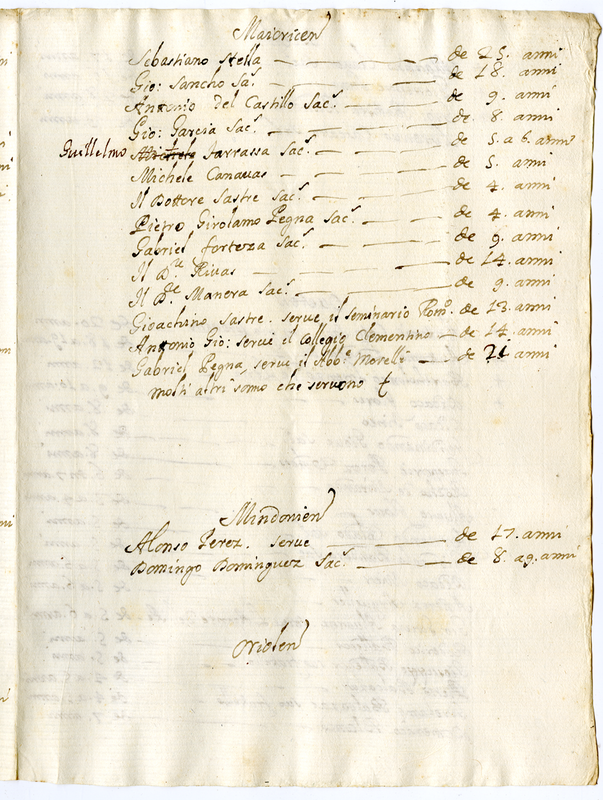 Maioricen
Sebastiano Stella — de 25. anni
Gio: Sancho Sac. — de 18. anni
Antonio Del Castillo Sac. — de 9. anni
Gio: Garcia Sac. — de 8. anni
Guillelmo Jarrassa Sac. — de 5. a 6. anni
Michele Canavas — de 5. anni
Il Dottore Sastre Sac. — de 4. anni
Pietro Girolamo Pegna Sac. — de 4. anni
Gabriel forteza Sac. — de 9. anni
Il D.re Rivas — de 14. anni
Il D.re Manera Sac. — de 9. anni
Gioachino Sastre. serve il seminario Rom.o de 13. anni
Antonio Gio: serve il Collegio Clementino — de 14. anni
Gabriel Pegna, serve il Abb.e Morelli — de anni
molti altri sono che servono
Mindonien
Alonso Perez. serve — de 17. anni
Domingo Dominguez Sac. — de 8. a 9. anni
Oriolen